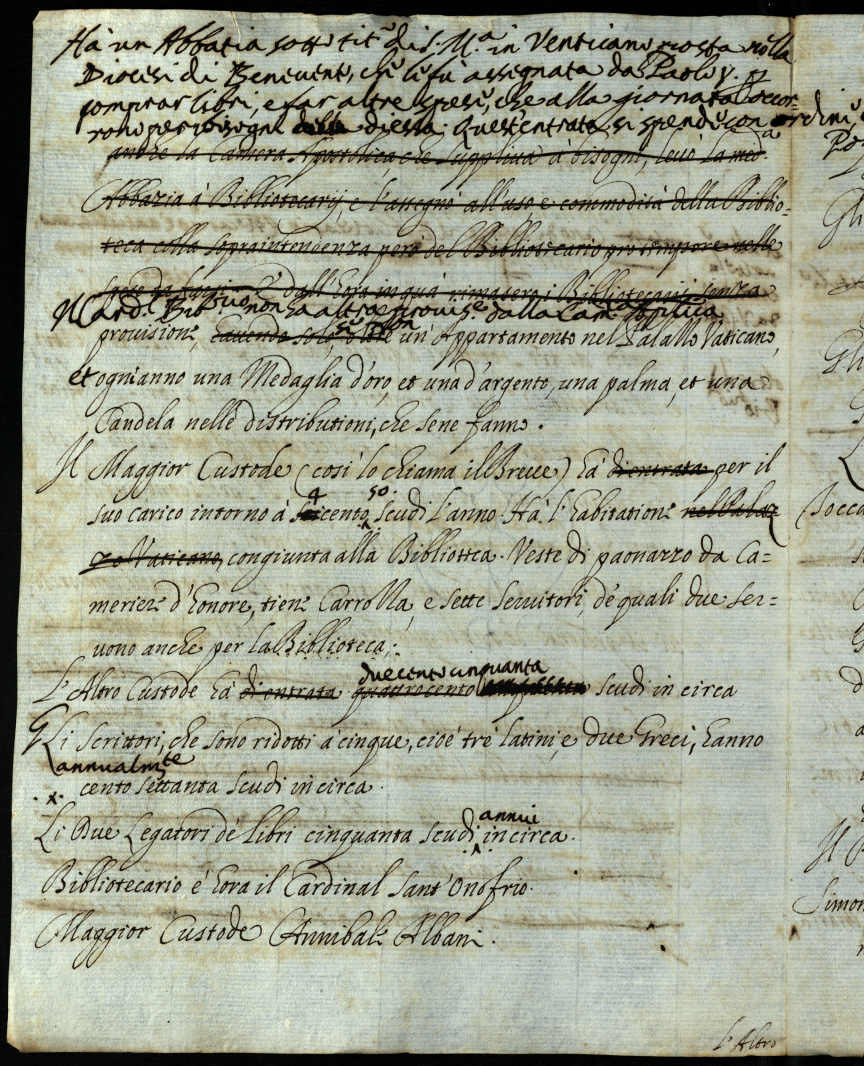 Hà un Abbatia sotto tit.º di S. M.ª in Venticano posta nella
Diocesi di Benevento, che li fù assegnata da Paolo V. p
comprar libri, e far altre spese, che alla giornata occor-
rono per bisogni della diessa. Quest'entrata si spende con ordini
anche la Camera Apostolica, che suppliva à bisogni, levò la med.ª
Abbazia à Bibliotecarij, e l'assegnò all'uso e commodità della Biblio=
teca colla sopraintendenza però del Bibliotecario pro tempore nelle
dall'hora in quà rimasero i Bibliotecarij senza
Il Card. Bib.rio non ha altra provis.e dalla Cam.
provisione, havendo solo un'Appartamento nel Palazzo Vaticano,
et ogni anno una Medaglia d'oro, et una d'argento, una palma, et una
Candela nelle distributioni, che se ne fanno.
Il Maggior Custode (così lo chiama il Breve) hà di entrata per il
4 50
suo carico intorno à cento scudi l'anno. Hà l'habitatione nel Palaz
zo Vaticano, congiunta alla Biblioteca. Veste di paonazzo da Ca=
meriere d'honore, tiene Carrozza, e sette servitori, de quali due ser=
vono anche per la Biblioteca.
duecento cinquanta
L'Altro Custode hà di entrata quattrocento scudi in circa
Gli Scrittori, che sono ridotti à cinque, cioè trè latini, e due Greci, hanno
annualm.te
cento settanta scudi in circa.
annui
Li Due Legatori de libri cinquanta scudi in circa.
Bibliotecario è hora il Cardinal Sant'Onofrio.
Maggior Custode Annibale Albani.
L'Altro